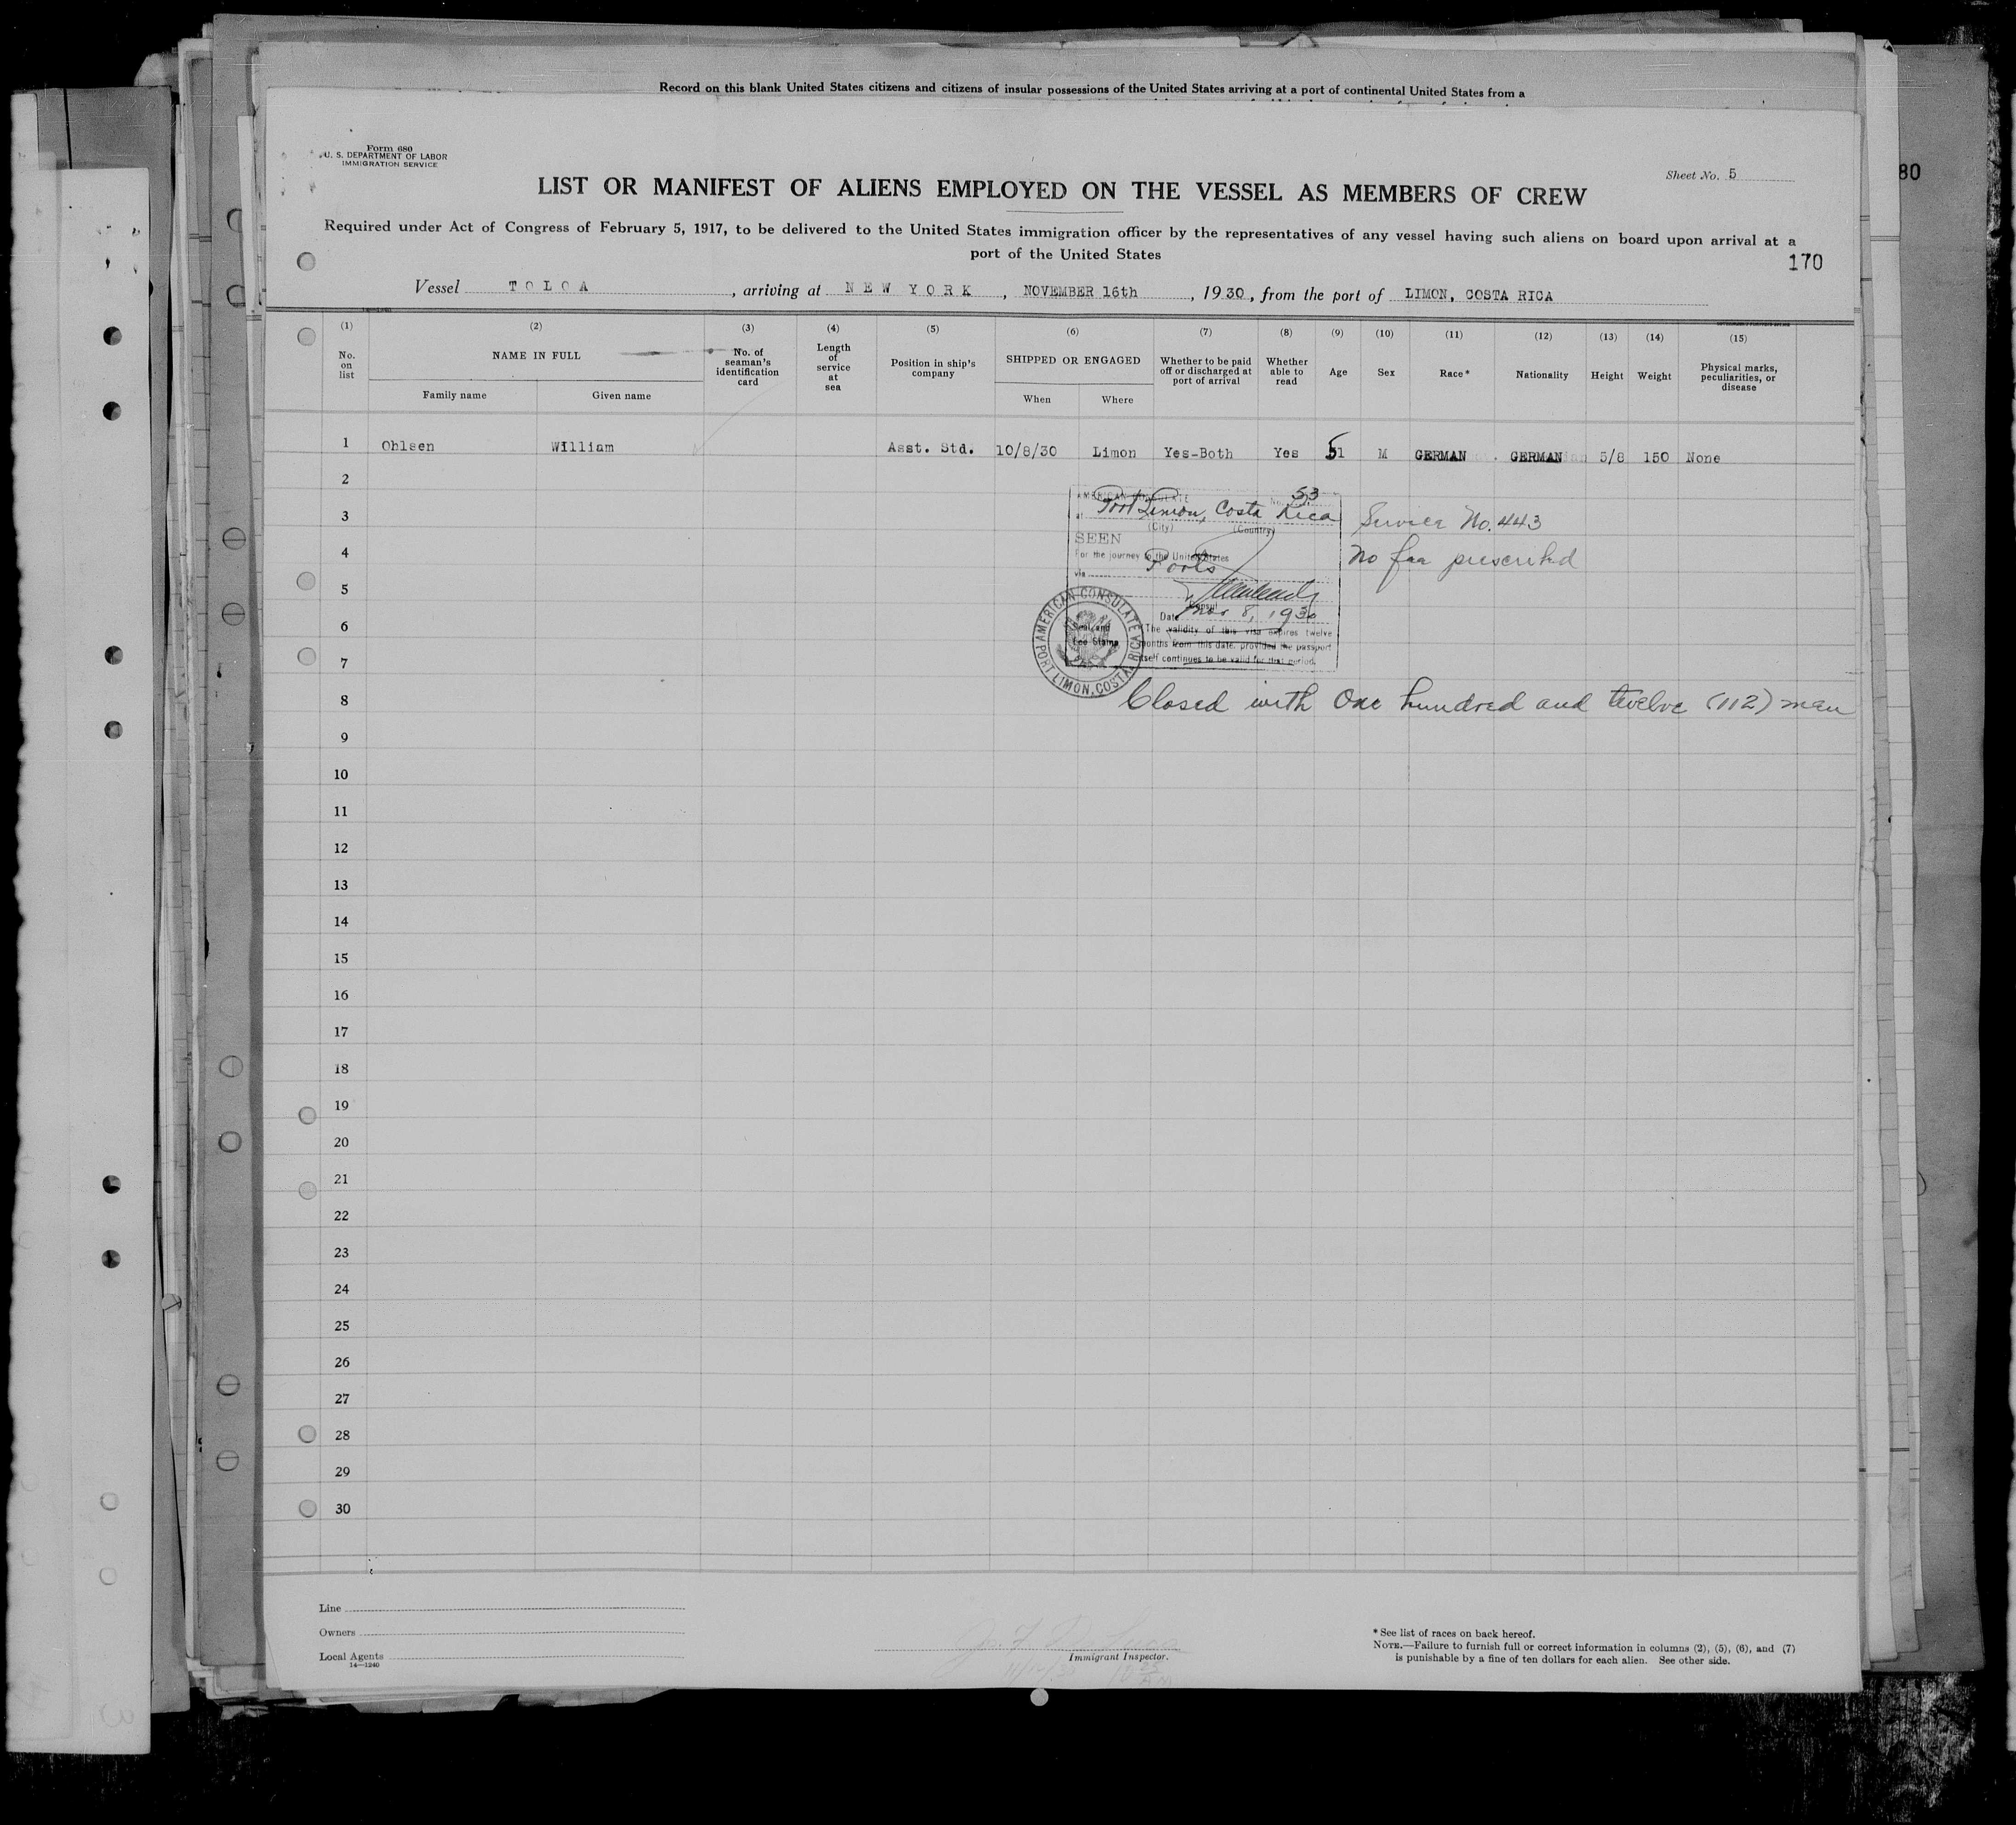 Record on this blank United States citizens and citizens of insular possessions of the United States arriving at a port of continental United States from a
80
Form 680
U. S. DEPARTMENT OF LABOR
IMMIGRATION SERVICE
Sheet No. 5
LIST OR MANIFEST OF ALIENS EMPLOYED ON THE VESSEL AS MEMBERS OF CREW
Required under Act of Congress of February 5, 1917, to be delivered to the United States immigration officer by the representatives of any vessel having such aliens on board upon arrival at a
port of the United States
170
Vessel TOLOA, arriving at NEW YORK, NOVEMBER 16th, 1930, from the port of LIMON, COSTA RICA
(1) (2) (3) (4) (5) (6) (7) (8) (9) (10) (11) (12) (13) (14) (15)
No. on list
NAME IN FULL
Family name Given name
No. of seaman's identification card
Length of service at sea
Position in ship's company
SHIPPED OR ENGAGED
When Where
Whether to be paid off or discharged at port of arrival
Whether able to read
Age
Sex
Race*
Nationality
Height
Weight
Physical marks, peculiarities, or disease
1 Ohlsen William Asst. Std. 10/8/30 Limon Yes-Both Yes 51 M GERMAN GERMAN 5/8 150 None
2
AMERICAN CONSULATE No. 53
3
at Port Limon, Costa Rica Service No. 443
(City) (Country)
SEEN
4
For the journey to the United States No fee prescribed
via
5
Consul
6
Date Nov 8, 1930
Seal and Fee Stamp
The validity of this visa expires twelve
months from this date, provided the passport
itself continues to be valid for that period.
AMERICAN CONSULATE PORT LIMON, COSTA RICA
7
8 Closed with One hundred and twelve (112) men
9
10
11
12
13
14
15
16
17
18
19
20
21
22
23
24
25
26
27
28
29
30
Line
Owners
Local Agents
14—1240
Immigrant Inspector.
* See list of races on back hereof.
NOTE.—Failure to furnish full or correct information in columns (2), (5), (6), and (7)
is punishable by a fine of ten dollars for each alien. See other side.